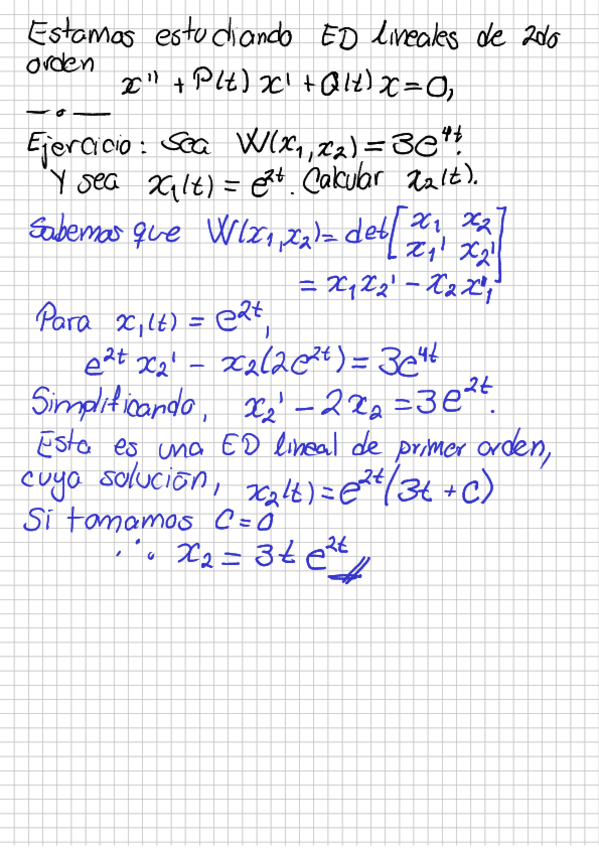 Estamos estudiando ED lineales de 2do
orden
x'' + P(t) x' + Q(t) x = 0,
Ejercicio: Sea W(x₁, x₂) = 3e⁴ᵗ.
Y sea x₁(t) = e²ᵗ. Calcular x₂(t).
Sabemos que W(x₁, x₂) = det[x₁ x₂
x₁' x₂']
= x₁x₂' - x₂x₁'
Para x₁(t) = e²ᵗ,
e²ᵗ x₂' - x₂(2e²ᵗ) = 3e⁴ᵗ
Simplificando, x₂' - 2x₂ = 3e²ᵗ.
Esta es una ED lineal de primer orden,
cuya solución, x₂(t) = e²ᵗ(3t + C)
Si tomamos C = 0
∴ x₂ = 3t e²ᵗ